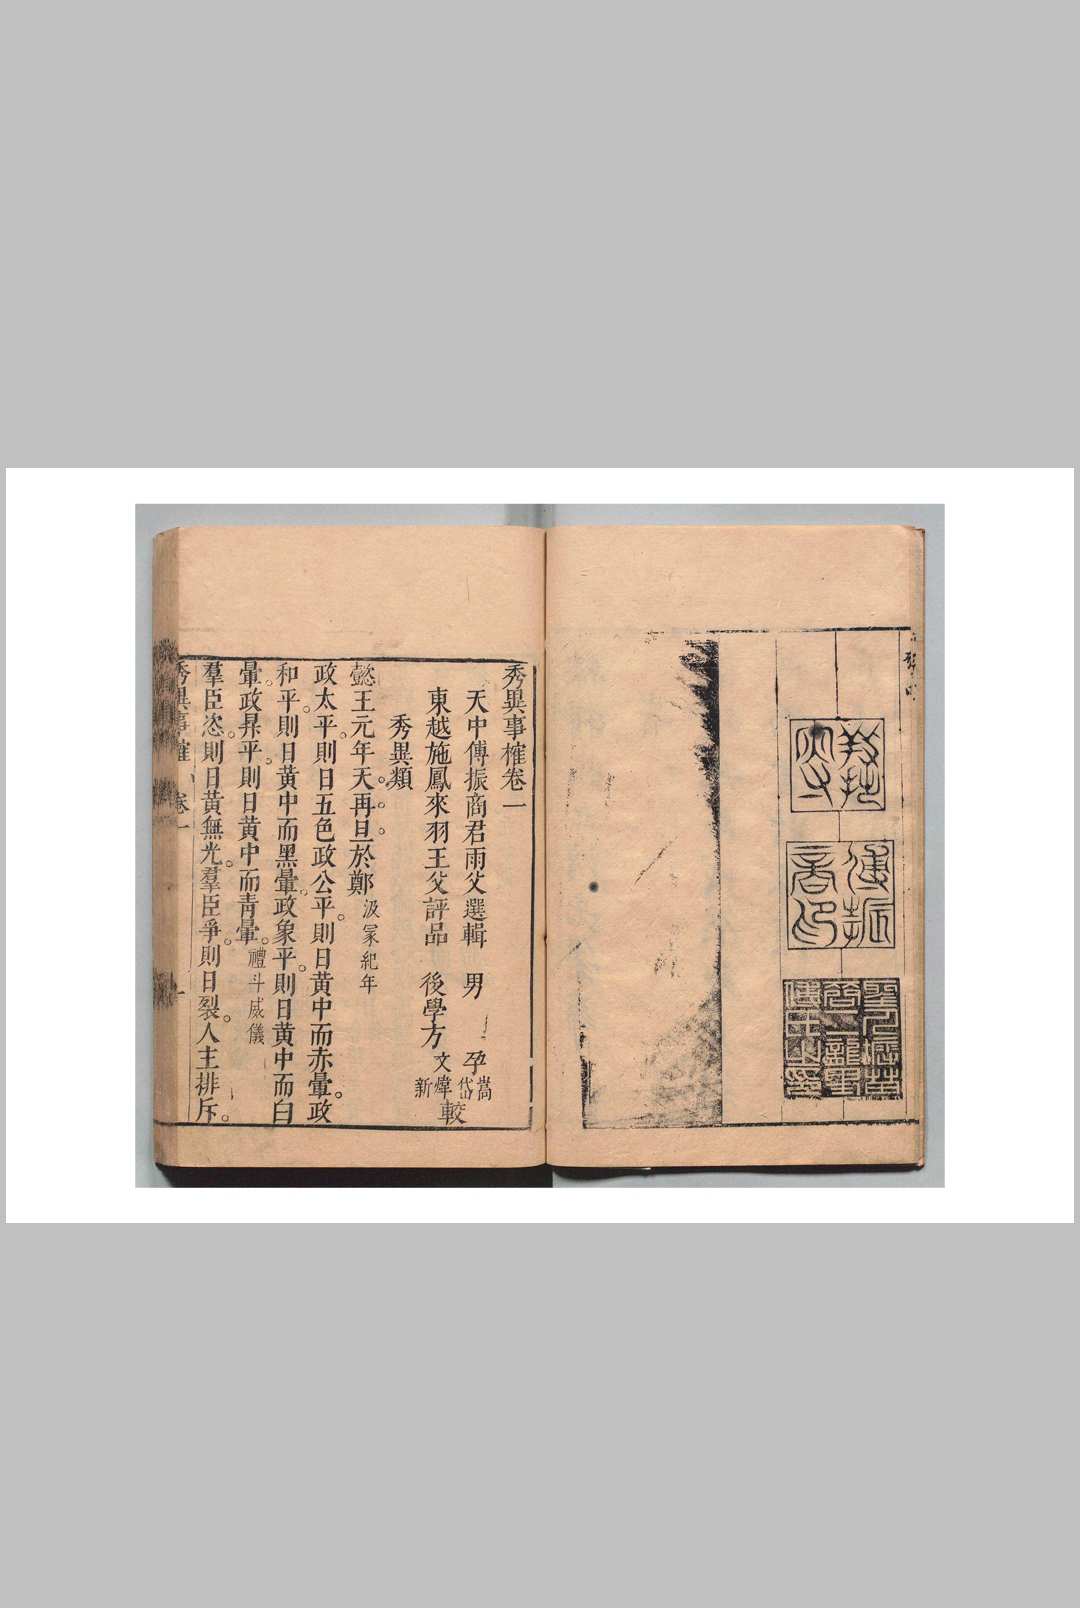 傅振
商印
秀異事榷卷一
天中傅振商君雨父選輯　男　孕嵩岱
東越施鳳來羽王父評品　後學方文煒新較
秀異類
懿王元年天再旦於鄭汲冢紀年
政太平則日五色政公平則日黃中而赤暈政
和平則日黃中而黑暈政象平則日黃中而白
暈政昇平則日黃中而青暈禮斗威儀
羣臣恣則日黃無光羣臣爭則日裂人主排斥
秀異事榷　卷一　一